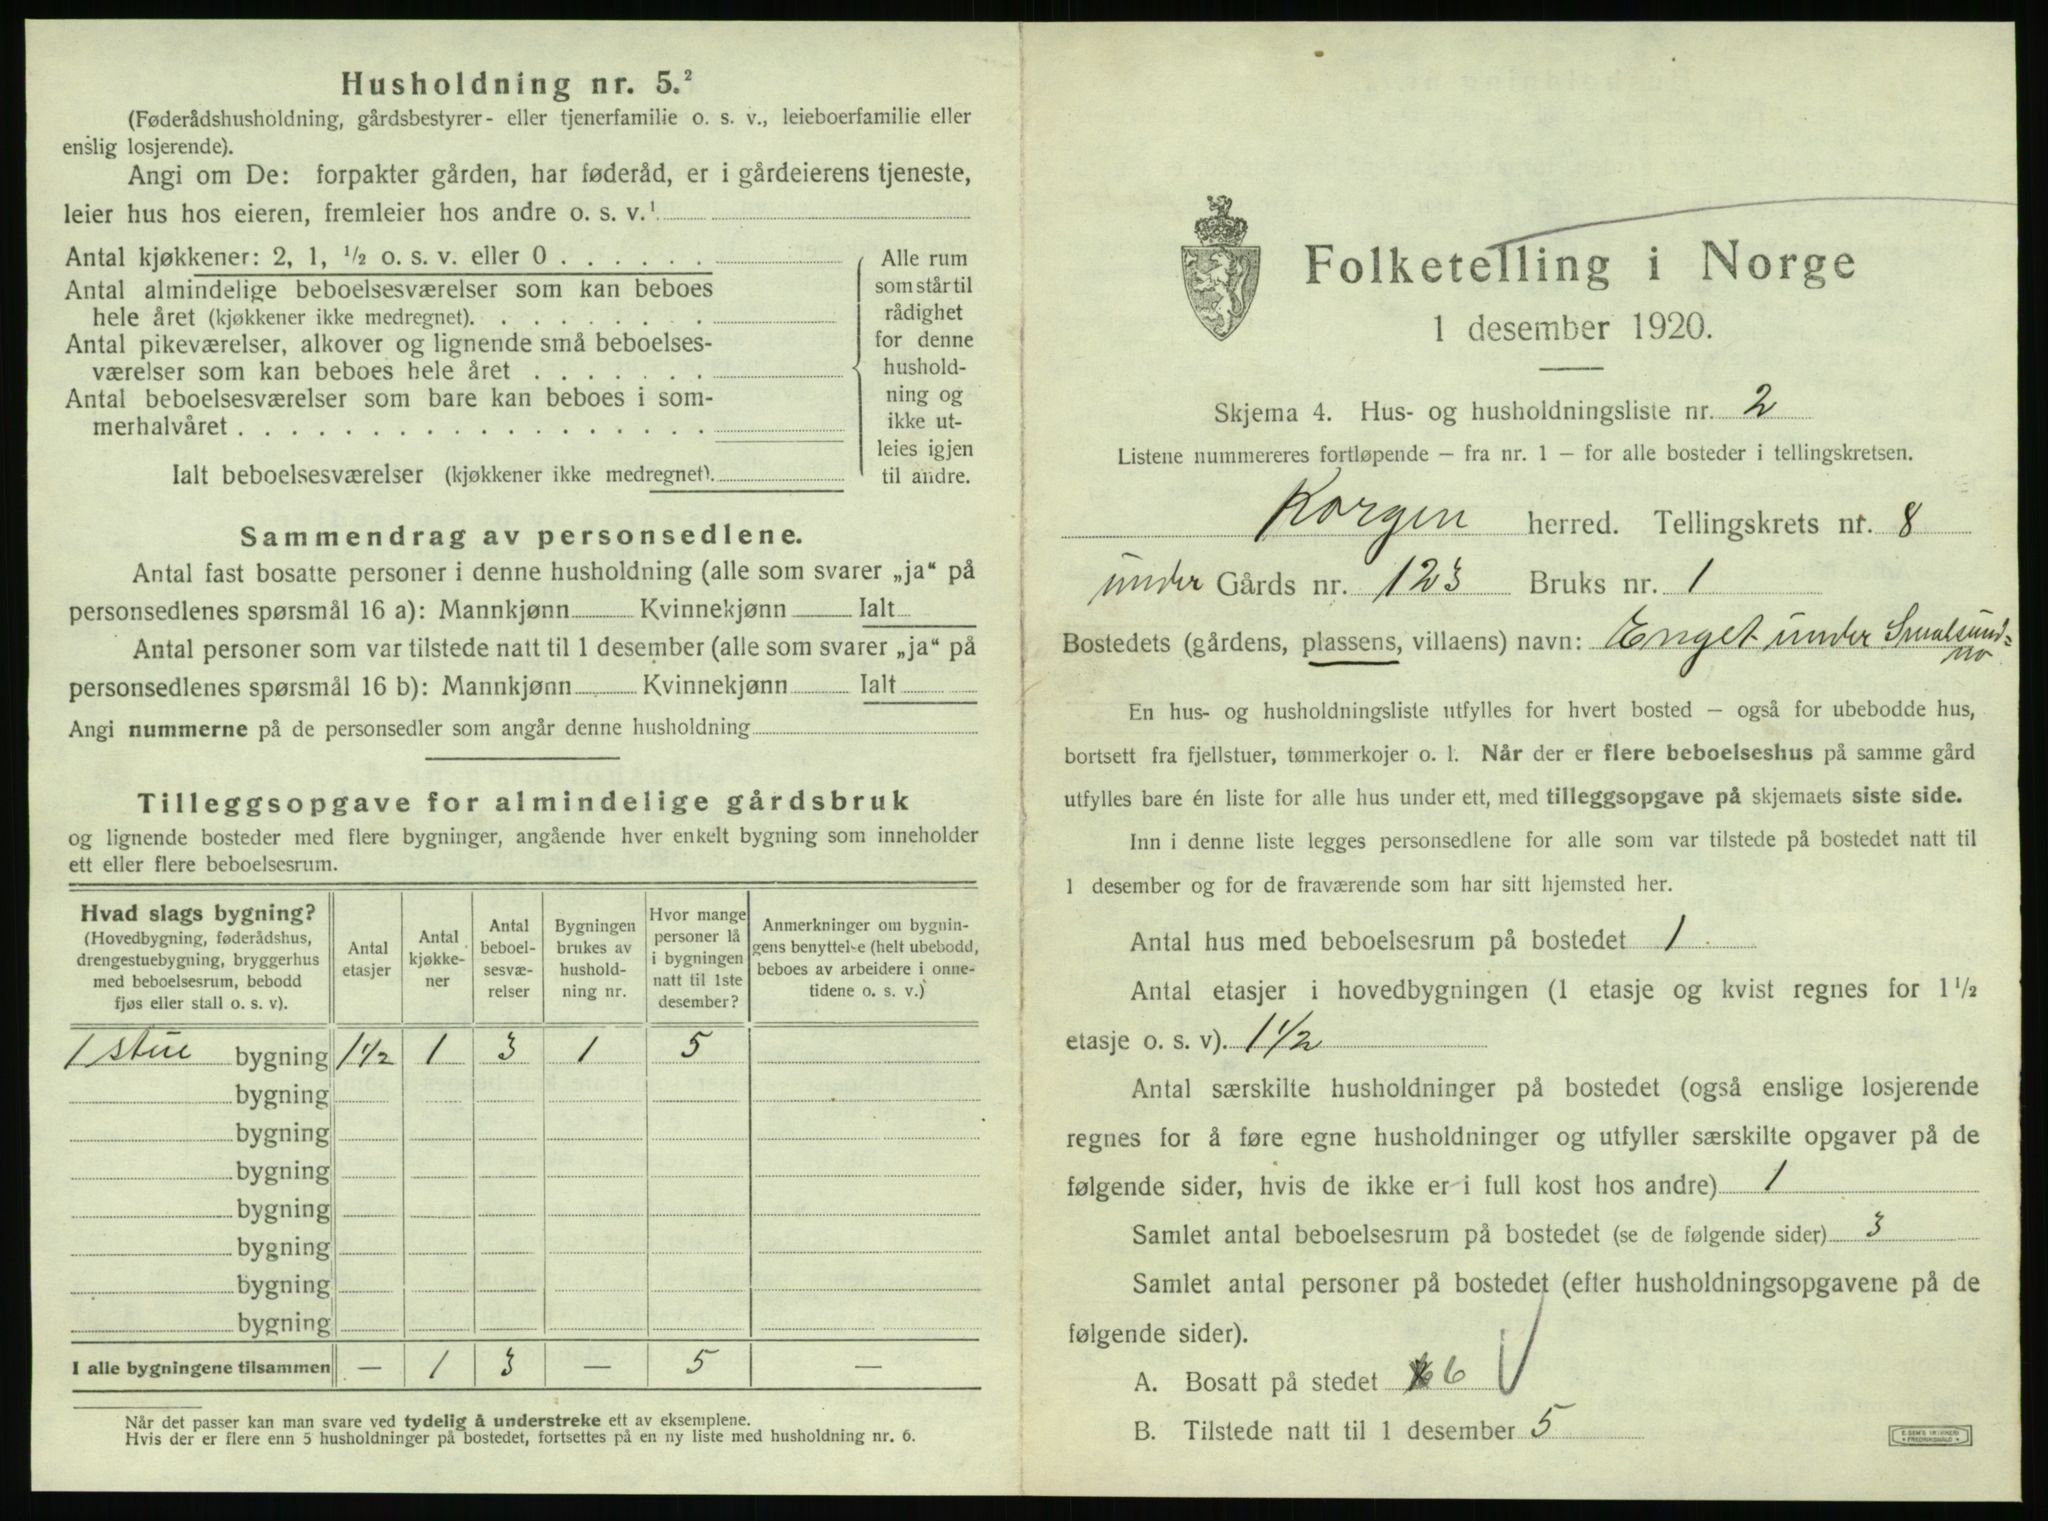 Husholdning nr. 5.²
(Føderådshusholdning, gårdsbestyrer- eller tjenerfamilie o. s. v., leieboerfamilie eller
enslig losjerende).
Angi om De: forpakter gården, har føderåd, er i gårdeierens tjeneste,
leier hus hos eieren, fremleier hos andre o. s. v.¹
Antal kjøkkener: 2, 1, ½ o. s. v. eller 0 . . . . . .
Antal almindelige beboelsesværelser som kan beboes
hele året (kjøkkener ikke medregnet). . . . . . . .
Antal pikeværelser, alkover og lignende små beboelses-
værelser som kan beboes hele året . . . . . . .
Antal beboelsesværelser som bare kan beboes i som-
merhalvåret . . . . . . . . . . . . . . . . . .
Ialt beboelsesværelser (kjøkkener ikke medregnet).
Alle rum
som står til
rådighet
for denne
hushold-
ning og
ikke ut-
leies igjen
til andre.
Sammendrag av personsedlene.
Antal fast bosatte personer i denne husholdning (alle som svarer „ja“ på
personsedlenes spørsmål 16 a): Mannkjønn Kvinnekjønn Ialt
Antal personer som var tilstede natt til 1 desember (alle som svarer „ja“ på
personsedlenes spørsmål 16 b): Mannkjønn Kvinnekjønn Ialt
Angi nummerne på de personsedler som angår denne husholdning
Tilleggsopgave for almindelige gårdsbruk
og lignende bosteder med flere bygninger, angående hver enkelt bygning som inneholder
ett eller flere beboelsesrum.
Hvad slags bygning?
(Hovedbygning, føderådshus,
drengestuebygning, bryggerhus
med beboelsesrum, bebodd
fjøs eller stall o. s. v).
Antal
etasjer
Antal
kjøkke-
ner
Antal
beboel-
sesvæ-
relser
Bygningen
brukes av
hushold-
ning nr.
Hvor mange
personer lå
i bygningen
natt til 1ste
desember?
Anmerkninger om bygnin-
gens benyttelse (helt ubebodd,
beboes av arbeidere i onne-
tidene o. s. v.)
1 stue bygning 1½ 1 3 1 5
bygning
bygning
bygning
bygning
bygning
bygning
bygning
I alle bygningene tilsammen — 1 3 — 5 —
Når det passer kan man svare ved tydelig å understreke ett av eksemplene.
Hvis der er flere enn 5 husholdninger på bostedet, fortsettes på en ny liste med husholdning nr. 6.
Folketelling i Norge
1 desember 1920.
Skjema 4. Hus- og husholdningsliste nr. 2
Listene nummereres fortløpende — fra nr. 1 — for alle bosteder i tellingskretsen.
Korgen herred. Tellingskrets nr. 8
under Gårds nr. 123 Bruks nr. 1
Bostedets (gårdens, plassens, villaens) navn: Enget under Smalsund=
mo
En hus- og husholdningsliste utfylles for hvert bosted — også for ubebodde hus,
bortsett fra fjellstuer, tømmerkojer o. l. Når der er flere beboelseshus på samme gård
utfylles bare én liste for alle hus under ett, med tilleggsopgave på skjemaets siste side.
Inn i denne liste legges personsedlene for alle som var tilstede på bostedet natt til
1 desember og for de fraværende som har sitt hjemsted her.
Antal hus med beboelsesrum på bostedet 1
Antal etasjer i hovedbygningen (1 etasje og kvist regnes for 1½
etasje o. s. v). 1½
Antal særskilte husholdninger på bostedet (også enslige losjerende
regnes for å føre egne husholdninger og utfyller særskilte opgaver på de
følgende sider, hvis de ikke er i full kost hos andre) 1
Samlet antal beboelsesrum på bostedet (se de følgende sider) 3
Samlet antal personer på bostedet (efter husholdningsopgavene på de
følgende sider).
A. Bosatt på stedet 6
B. Tilstede natt til 1 desember 5